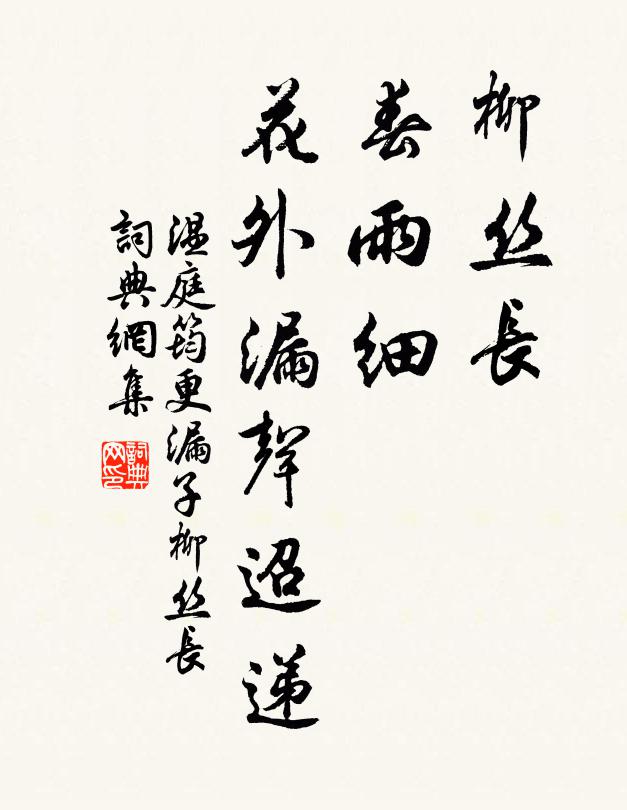 柳丝長
春雨細
花外漏聲迢递
温庭筠更漏子柳丝長
詞典網集
詞典网印